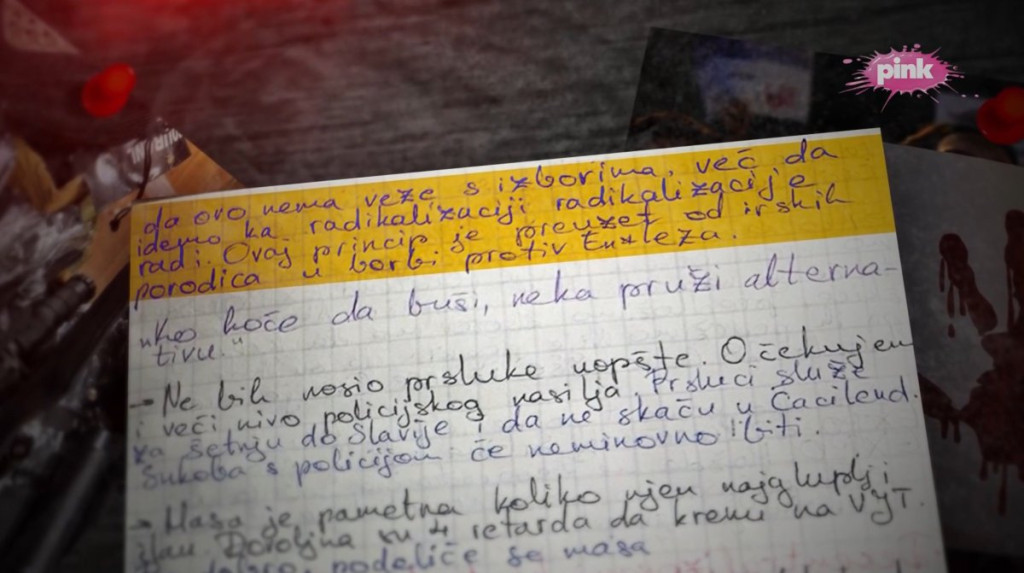 pink
da ovo nema veze s izborima, već da
idemo ka radikalizaciji radikalizacije
radi. Ovaj princip je preuzet od irskih
porodica u borbi protiv Engleza.
„Ko hoće da buši, neka pruži alterna-
tivu."
→ Ne bih nosio prsluke uopšte. Očekujem
i veći nivo policijskog nasilja. Prsluci služe
za šetnju do Slavije i da ne skaču u Ćacilend.
Sukoba s policijom će neminovno biti.
→ Masa je pametna koliko njen najgluplji
član. Dovoljna su 4 retarda da krenu na VJT.
dobro, podeliće se masa